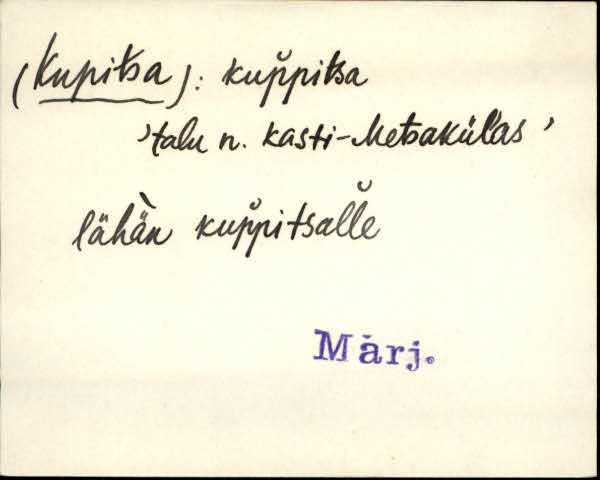 (Kupitsa): kup̆pitsa
'talu n. Kasti-Metsaküĺas'
lähä̀n kup̆pitsal̆le
Märj.